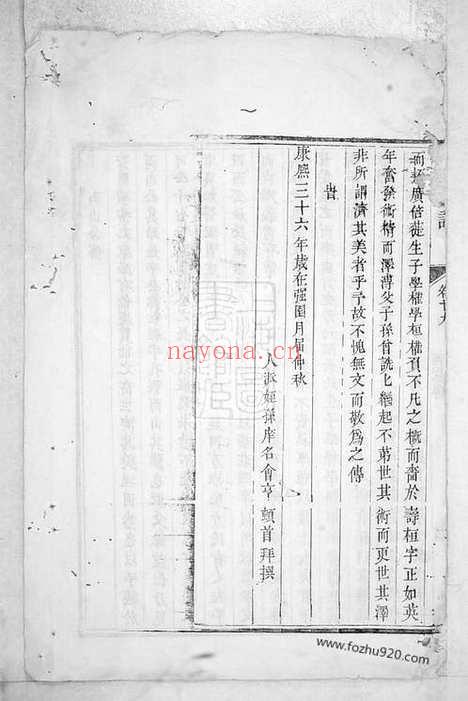 而廣倍徙生子學權學桓權頁不凡之概而嗇於壽桓字正如英
年奮發術精而澤溥父子孫曾詵詵繩起不第世其術而更世其澤
非所謂濟其美者乎予故不愧無文而敬爲之傳
旹
康熙三十六年歲在强圉月届仲秋
人淑姪孫庠名會亨頓首拜撰
卷十九
nayona.cn
www.fozhu920.com